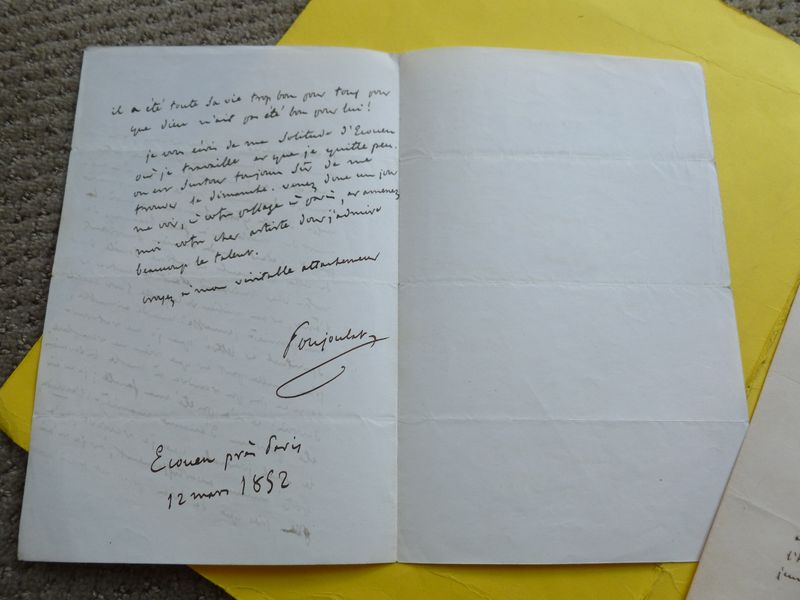 il a été toute sa vie trop bon pour tous pour
que dieu n'ait pas été bon pour lui!
je vous écris de ma solitude d'Ecouen
où je travaille et que je quitte peu.
on est surtout toujours sûr de me
trouver le dimanche. venez donc un jour
me voir, à votre passage à paris, et amenez
moi votre cher artiste dont j'admire
beaucoup le talent.
croyez à mon véritable attachement
Poujoulat
Ecouen près Paris
12 mars 1852